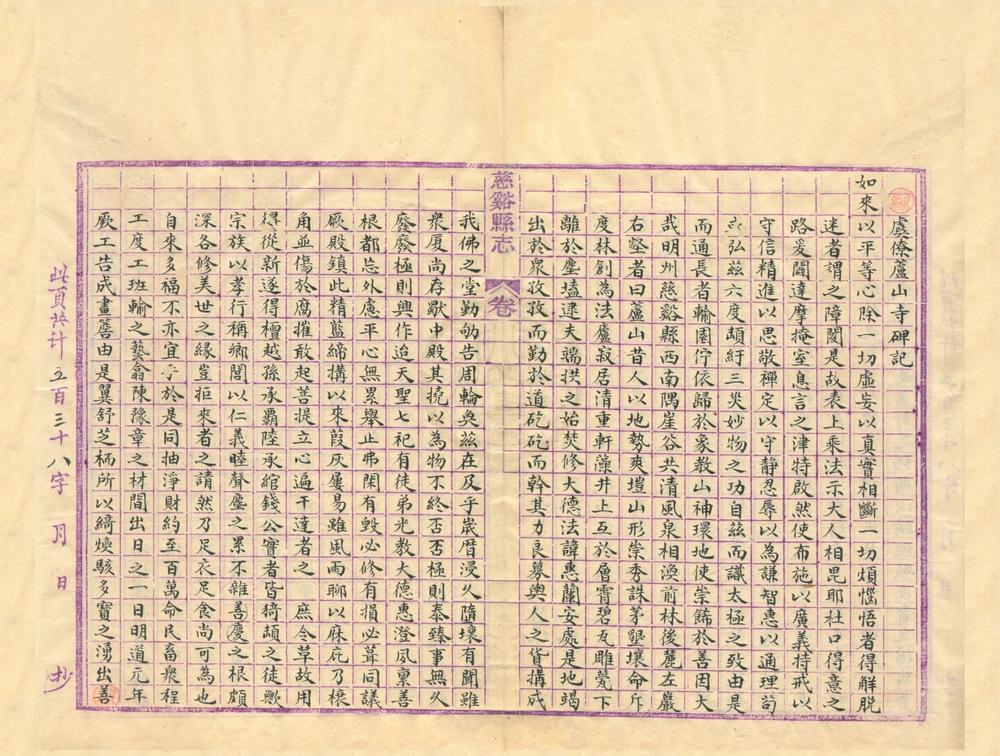 虞僚蘆山寺碑記
如來以平等心除一切虛妄以真實相斷一切煩惱悟者得解脫
迷者謂之障閡是故表上乘法示大人相毘耶杜口得意之
路爰闢達摩掩室息言之津特啟然使布施以廣義持戒以
守信精進以思敬禪定以守静忍辱以為謙智惠以通理苟
弘茲六度頔紆三炎妙物之功自茲而識太極之致由是
而通長者輸園佇依歸於象教山神環地使崇餙於善因大
哉明州慈谿縣西南隅崖谷共清風泉相渙前林後麓左巖
右壑者曰蘆山昔人以地勢爽塏山形崇秀誅茅墾壤命斤
度林創為法廬寂居清重軒藻井上亙於層霄碧瓦雕甍下
離於塵壒逮夫端拱之始焚修大德法諱惠蘭安處是地竭
出於衆孜孜而勤於道矻矻而幹其力良募輿人之貨構成
慈谿縣志 卷
我佛之堂勤劬告周輪奐茲在及乎嵗曆浸久隳壞有闕雖
衆厦尚存歇中殿其撓以為物不終否否極則泰臻事無久
廢廢極則興作迨天聖七祀有徒弟光教大德惠澄夙稟善
根都忘外慮平心無累舉止弗閑有毀必修有損必葺同議
厥殿鎮此精藍締構以來葭灰屢易雖風雨聊以庥庇乃榱
角並傷於腐摧敢起菩提立心遍干達者之 庶令草故用
得從新遂得檀越孫承覇陸承綰錢公實者皆猗頔之徒歟
宗族以孝行稱鄉閭以仁義睦聲塵之累不雜善慶之根頗
深各修美世之縁豈拒來者之請然乃足衣足食尚可為也
自來多福不亦宜乎於是同抽淨財約至百萬命民畜衆程
工度工班輸之藝翕陳豫章之材間出日之一日明道元年
厥工告成畫簷由是翼舒芝栭所以綺煥駭多寶之湧出善
此頁共計五百三十八字 月 日 抄